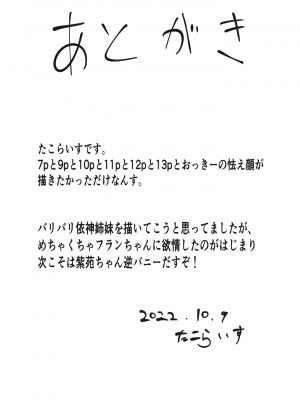 あとがき
たこらいすです。
7pと9pと10pと11pと12pと13pとおっきーの怯え顔が
描きたかっただけなんす。
バリバリ依神姉妹を描いてこうと思ってましたが、
めちゃくちゃフランちゃんに欲情したのがはじまり
次こそは紫苑ちゃん逆バニーだすぞ！
2022.10.9
たこらいす